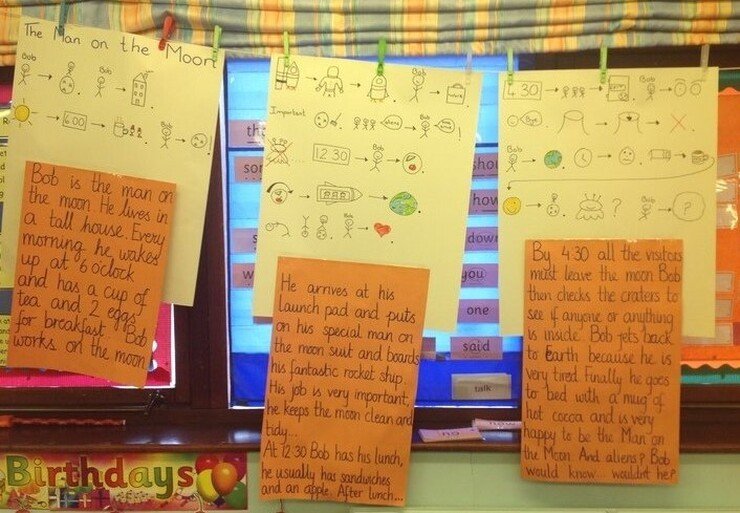 The Man on the Moon
Bob
Bob
6:00
Bob
Bob is the man on
the moon. He lives in
a tall house. Every
morning he wakes
up at 6 oclock
and has a cup of
tea and 2 eggs
for breakfast. Bob
works on the moon
Bob
Important
Bob
12 30
Bob
Bob
He arrives at his
launch pad and puts
on his special man on
the moon suit and boards
his fantastic rocket ship.
His job is very important,
he keeps the moon clean and
tidy...
At 12 30 Bob has his lunch,
he usually has sandwiches
and an apple. After lunch...
4 30
Bob
Bye
Bob
?
Bob
?
By 4 30 all the visitors
must leave the moon Bob
then checks the craters to
see if anyone or anything
is inside. Bob jets back
to Earth because he is
very tired. Finally he goes
to bed with a mug of
hot cocoa and is very
happy to be the Man on
the Moon. And aliens? Bob
would know... wouldnt he?
how
down
you
one
said
talk
no
now
Birthdays